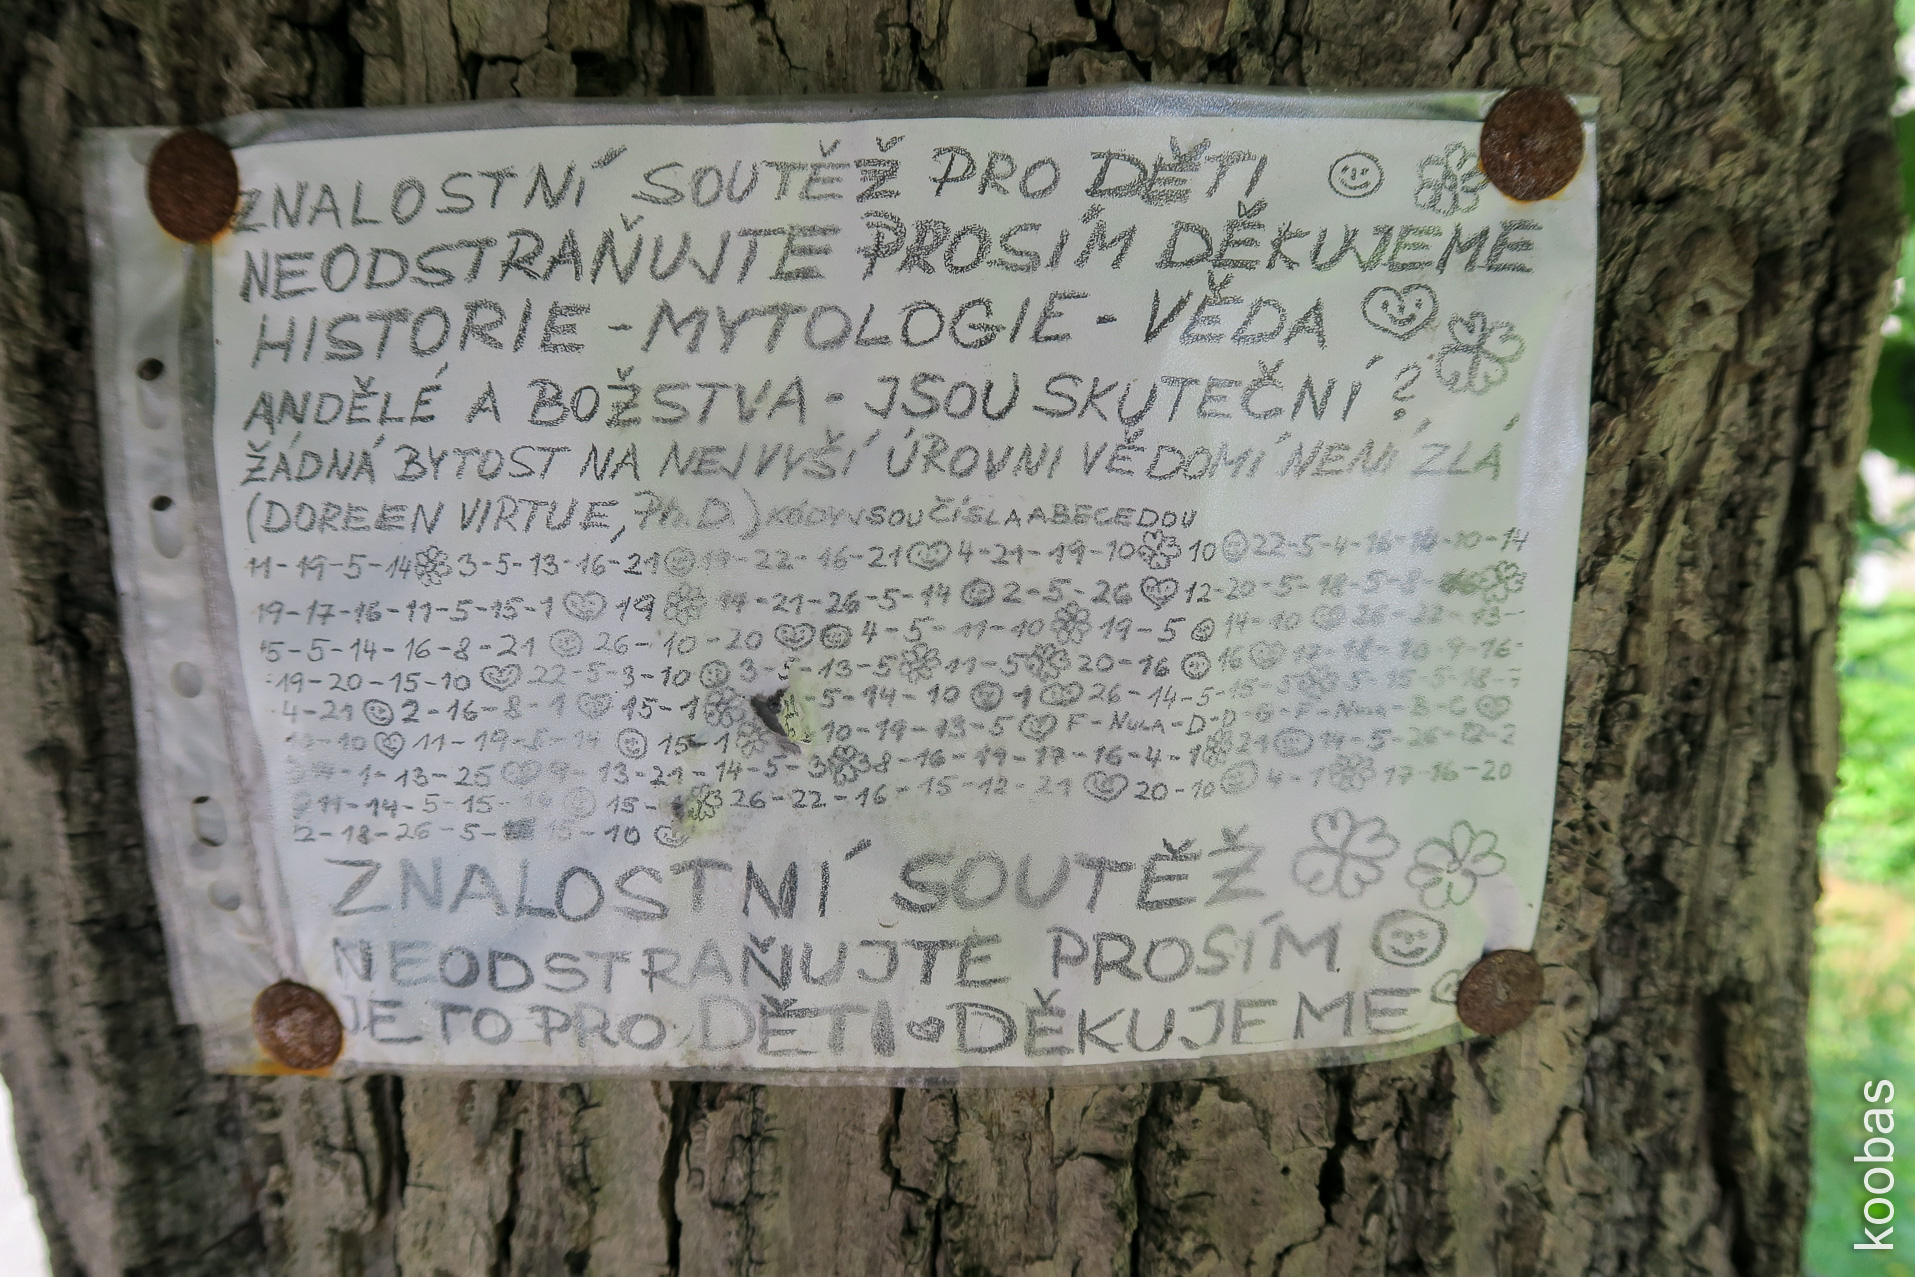 ZNALOSTNÍ SOUTĚŽ PRO DĚTI
NEODSTRAŇUJTE PROSÍM DĚKUJEME
HISTORIE - MYTOLOGIE - VĚDA
ANDĚLÉ A BOŽSTVA - JSOU SKUTEČNÍ?
ŽÁDNÁ BYTOST NA NEJVYŠŠÍ ÚROVNI VĚDOMÍ NENÍ ZLÁ
(DOREEN VIRTUE, Ph.D.) KÓDY JSOU ČÍSLA ABECEDOU
11-19-5-14 3-5-13-16-21 17-22-16-21 4-21-19-10 10 22-5-4-16
19-17-16-11-5-15-1 19 14-21-26-5-14 2-5-26 12-20-5-18-5-8
5-5-14-16-8-21 26-10-20 4-5-11-10 19-5 14-10 26-22-13-
19-20-15-10 22-5-3-10 3-5-13-5 11-5 20-16 16
4-21 2-16-8-1 15-1 5-14-10 1 26-14-5-15-5
10 11-19-5-14 15-1 10-19-13-5 F-NULA-D-D-G-F-NULA-B-C
1-13-25 9-13-21-14-5-3 8-16-19-17-16-4-1 21 14-5-26
11-14-5-15 15- 26-22-16-15-12-21 20-10 4-1 17-16-20
2-18-26-5- 15-10
ZNALOSTNÍ SOUTĚŽ
NEODSTRAŇUJTE PROSÍM
JE TO PRO DĚTI DĚKUJEME
koobas